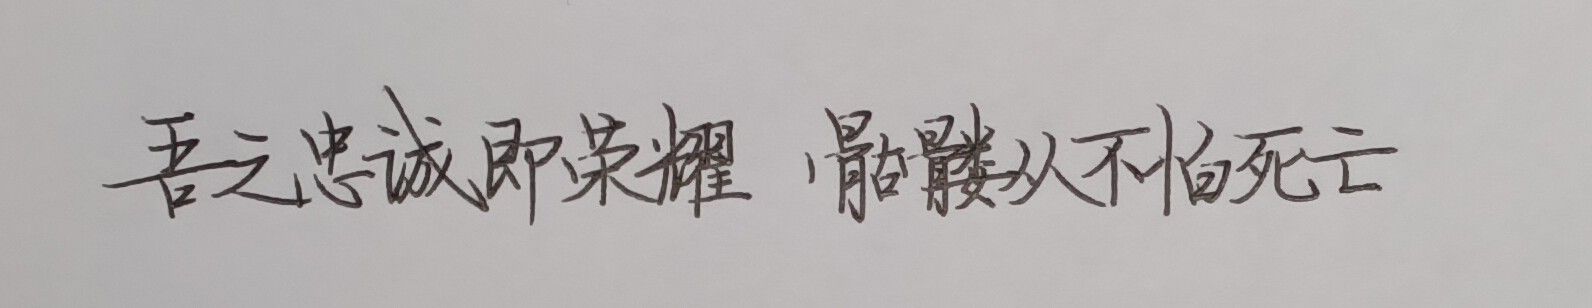 吾之忠诚即荣耀 骷髅从不怕死亡